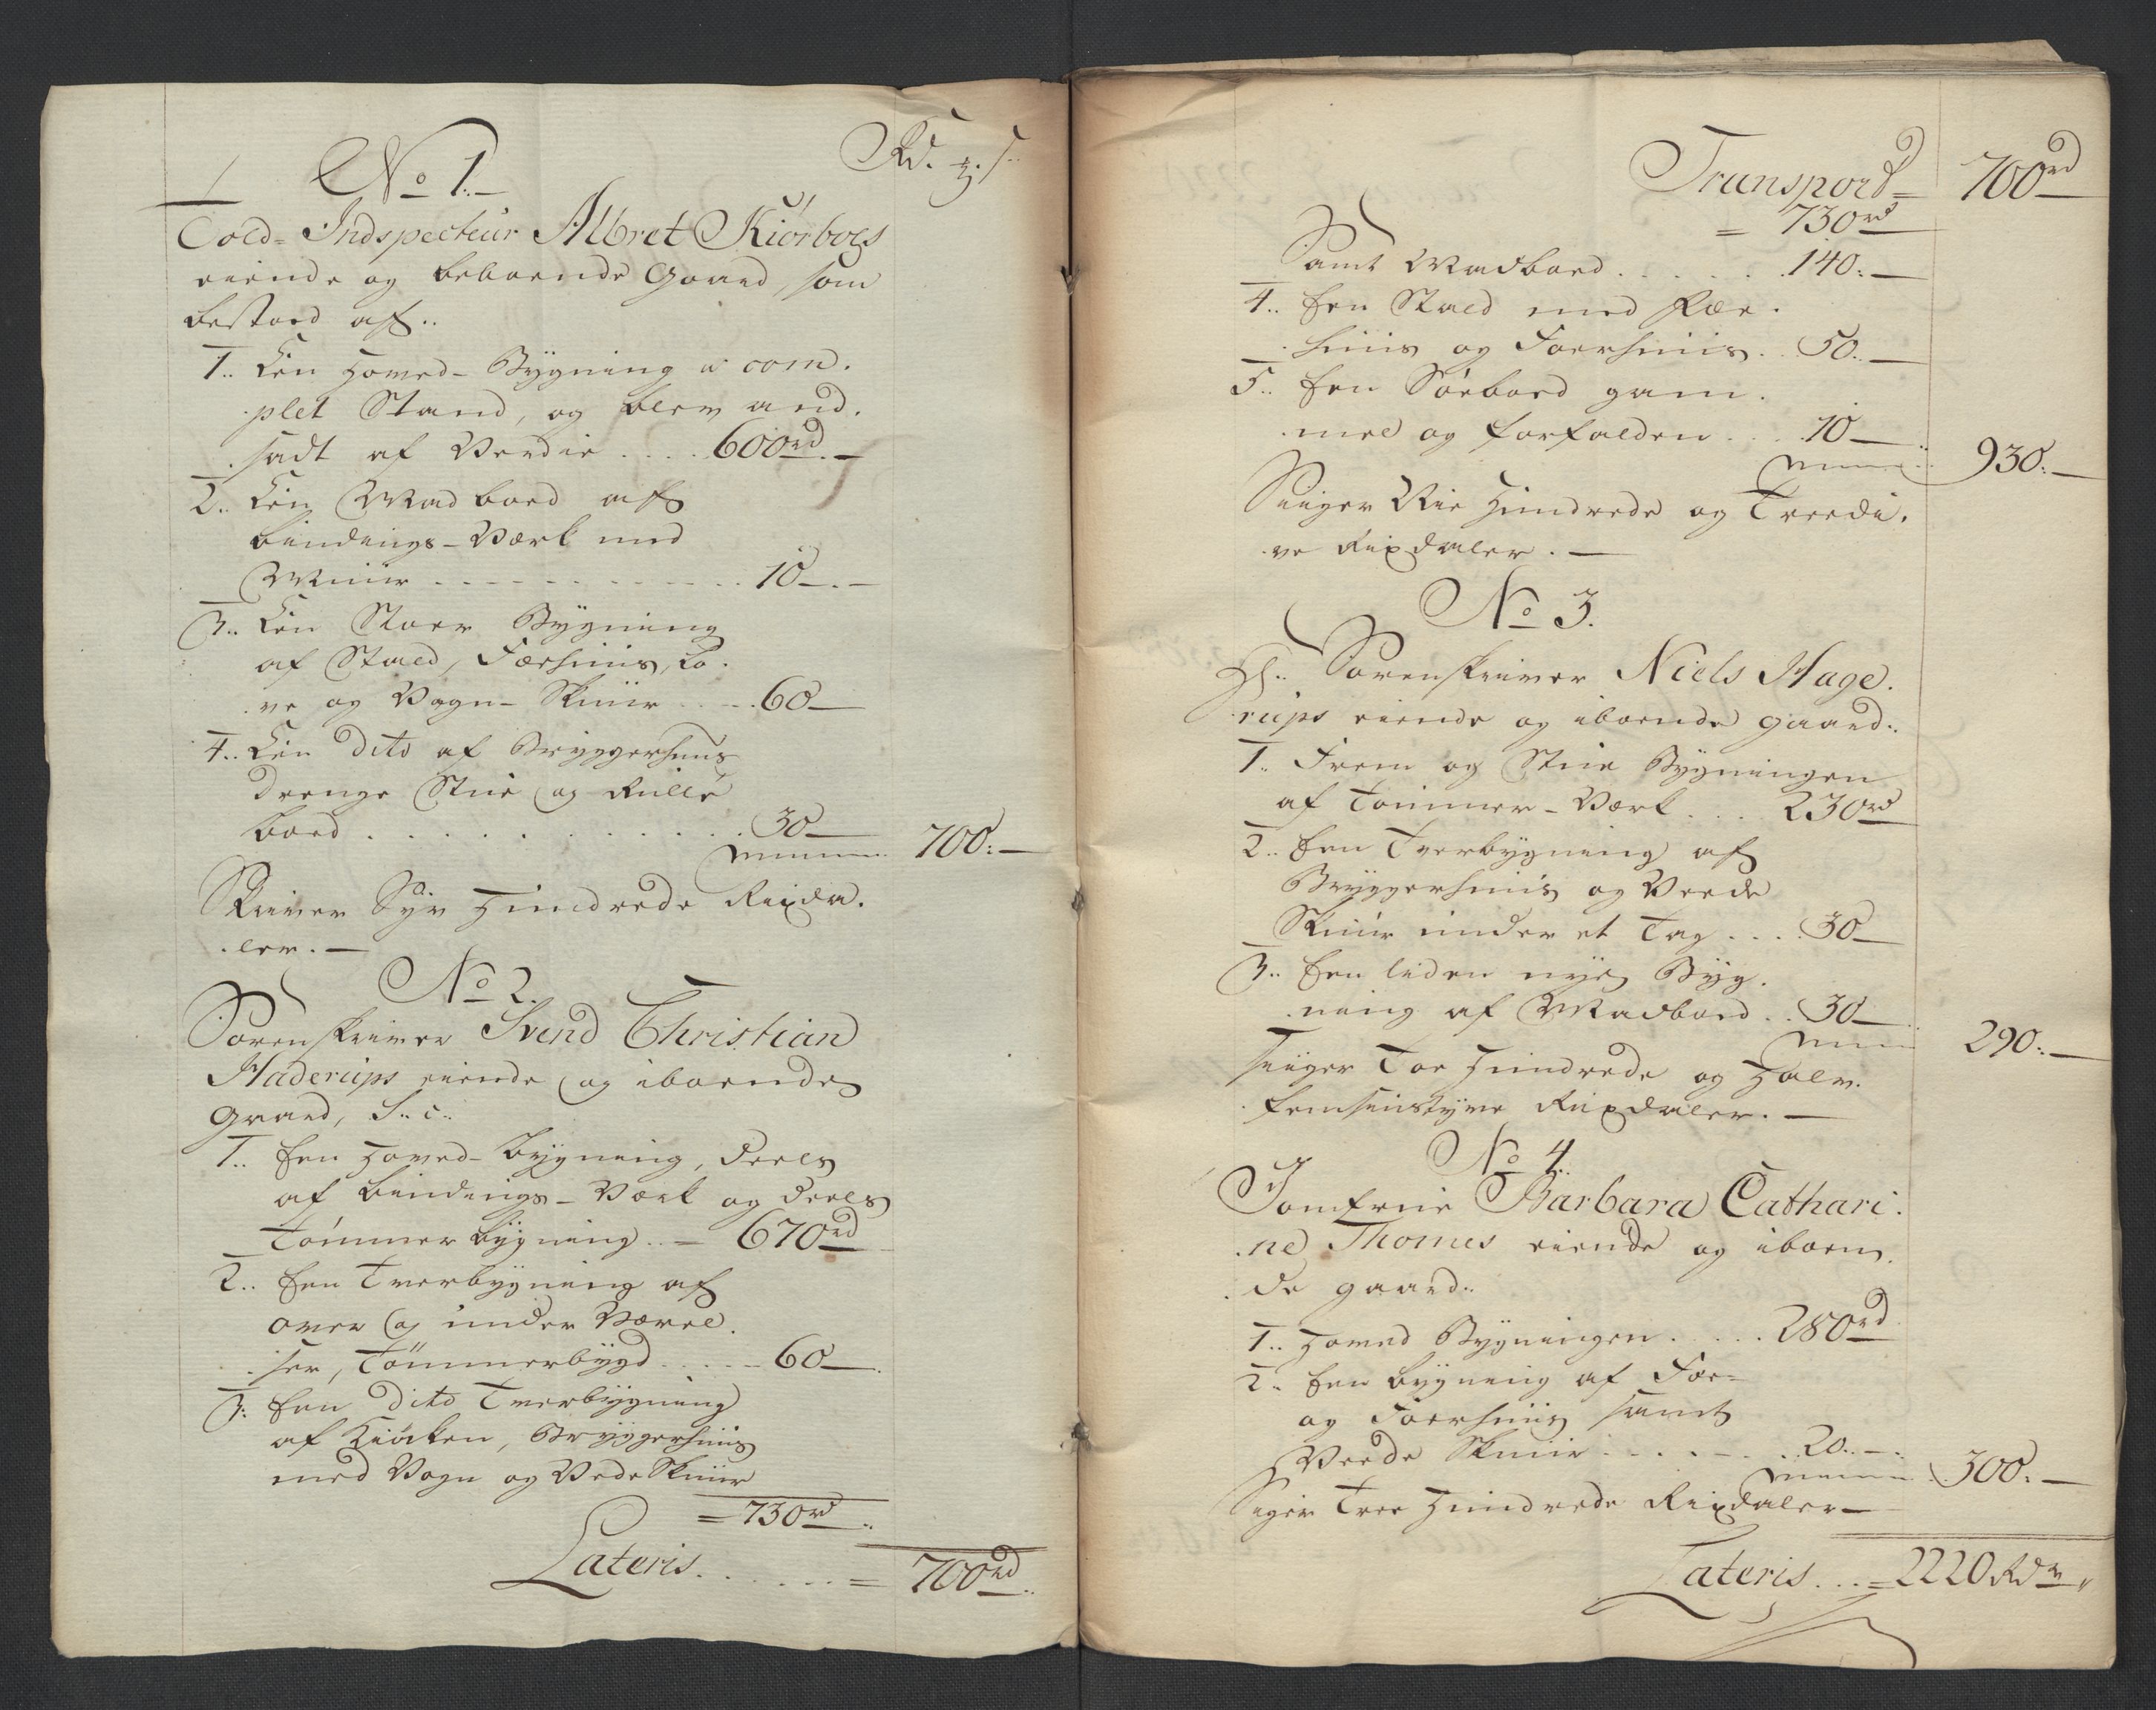 No 1.
Rd. ʒ. s
Told-Indspecteur Albret Kiörboes
eiende og beboende Gaard, som
bestaaed af..
1.. Een Hoved-Bygning i com-
plet Stand, og blev and-
sadt af Verdie .... 600rd.
2.. Een Madboed af
bindings-Værk med
Muur ........... 10
3.. Een Stoer Bygning
af Stald, Færhuus, Lo-
ve og Vogn-Skuur .... 60
4.. Een dito af Bryggerhuus
Drenge Stue og Rulle
boed ............ 30
700:
Skriver Syv Hundrede Rixda-
ler.
No 2.
Sorenskriver Svend Christian
Haderups eiende og iboende
Gaard, S.. c..
1.. Een Hoved-bygning, deels
af bindings-Værk og deels
Tömmerbygning .. = 670rd
2.. Een Tverbygning af
over og under Værel-
ser, Tömmerbÿgd .... 60
3: Een dito Tverbygning
af Kiöcken, Bryggerhuus
med Vogn og VedeSkuur
= 730rd
Lateris ...... = 700rd
Transpord = 700rd
= 730rd
Samt Madboed ...... 140:
4.. Een Stald med Fæe-
huus og Foerhuus .. 50..
5.. Een Söeboed gam-
mel og forfalden .... 10
930:
Siiger Nie Hundrede og Tredi-
ve Rixdaler.
No 3.
Hr. Sorenskriver Niels Hage-
rups eiende og iboende gaard..
1.. Frem og Stue Bygningen
af Tömmer-Værk ... 230rd
2.. Een Tverbygning af
Bryggerhuus og Veede
Skuur under et Tag .... 30
3.. Een liden nye Byg-
ning af Madboed .. 30
290:
Siiger Toe Hundrede og Halv-
femsindstyve Rixdaler.
No 4.
Jomfrue Barbara Cathari-
ne Thomes eiende og iboen-
de gaard..
1.. Hoved Bygningen ..... 280rd
2.. Een bygning af Fæe-
og Foerhuus samt
Veede Skuur ..... 20..
300:
Siger Tree Hundrede Rixdaler
Lateris ... = 2220 Rdr